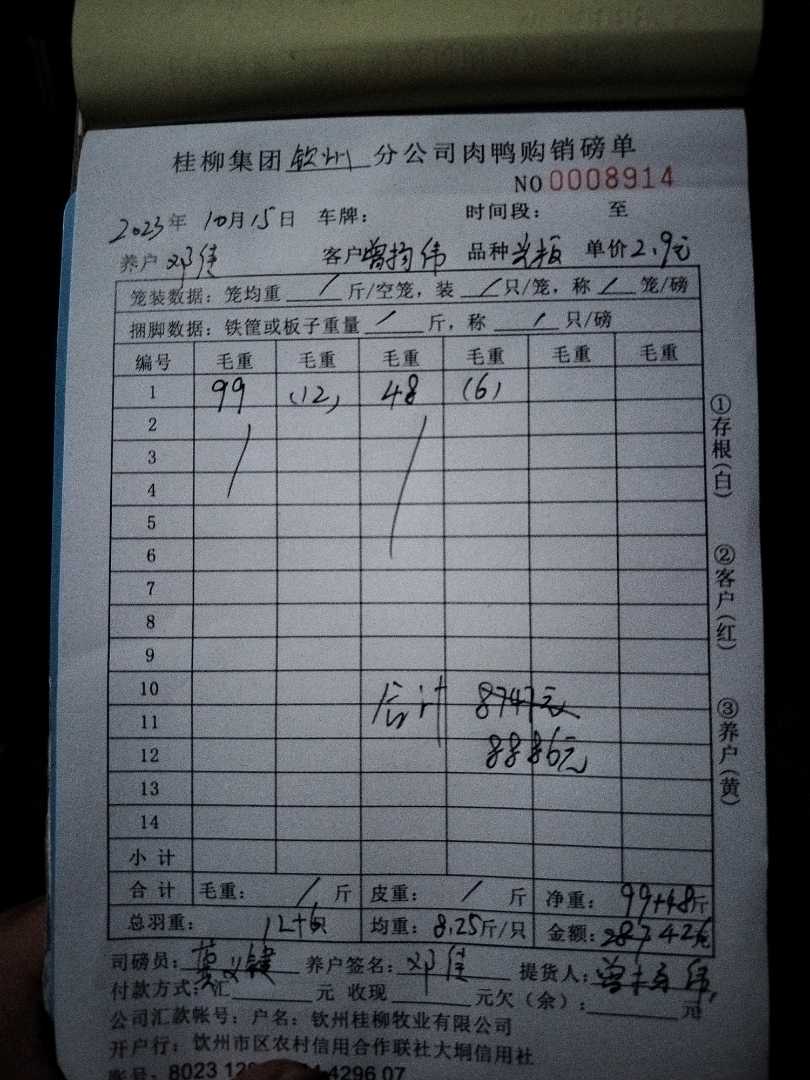 桂柳集团 钦州 分公司肉鸭购销磅单
NO 0008914
2023年 10月15日 车牌: 时间段: 至
养户 邓佳 客户 曾均伟 品种 光板 单价 2.9元
笼装数据: 笼均重 / 斤/空笼, 装 / 只/笼, 称 / 笼/磅
捆脚数据: 铁筐或板子重量 / 斤, 称 / 只/磅
编号 毛重 毛重 毛重 毛重 毛重 毛重
1 99 (12) 48 (6)
2
3
4
5
6
7
8
9
10
合计 8747元
11
8886元
12
13
14
小计
合计 毛重: / 斤 皮重: / 斤 净重: 99+48斤
总羽重: 12+6只 均重: 8.25斤/只 金额:
司磅员: 养户签名: 邓佳 提货人: 曾均伟
付款方式: 汇 元 收现 元欠(余): 元
公司汇款帐号: 户名: 钦州桂柳牧业有限公司
开户行: 钦州市区农村信用合作联社大垌信用社
账号: 8023 4296 07
①存根(白)
②客户(红)
③养户(黄)